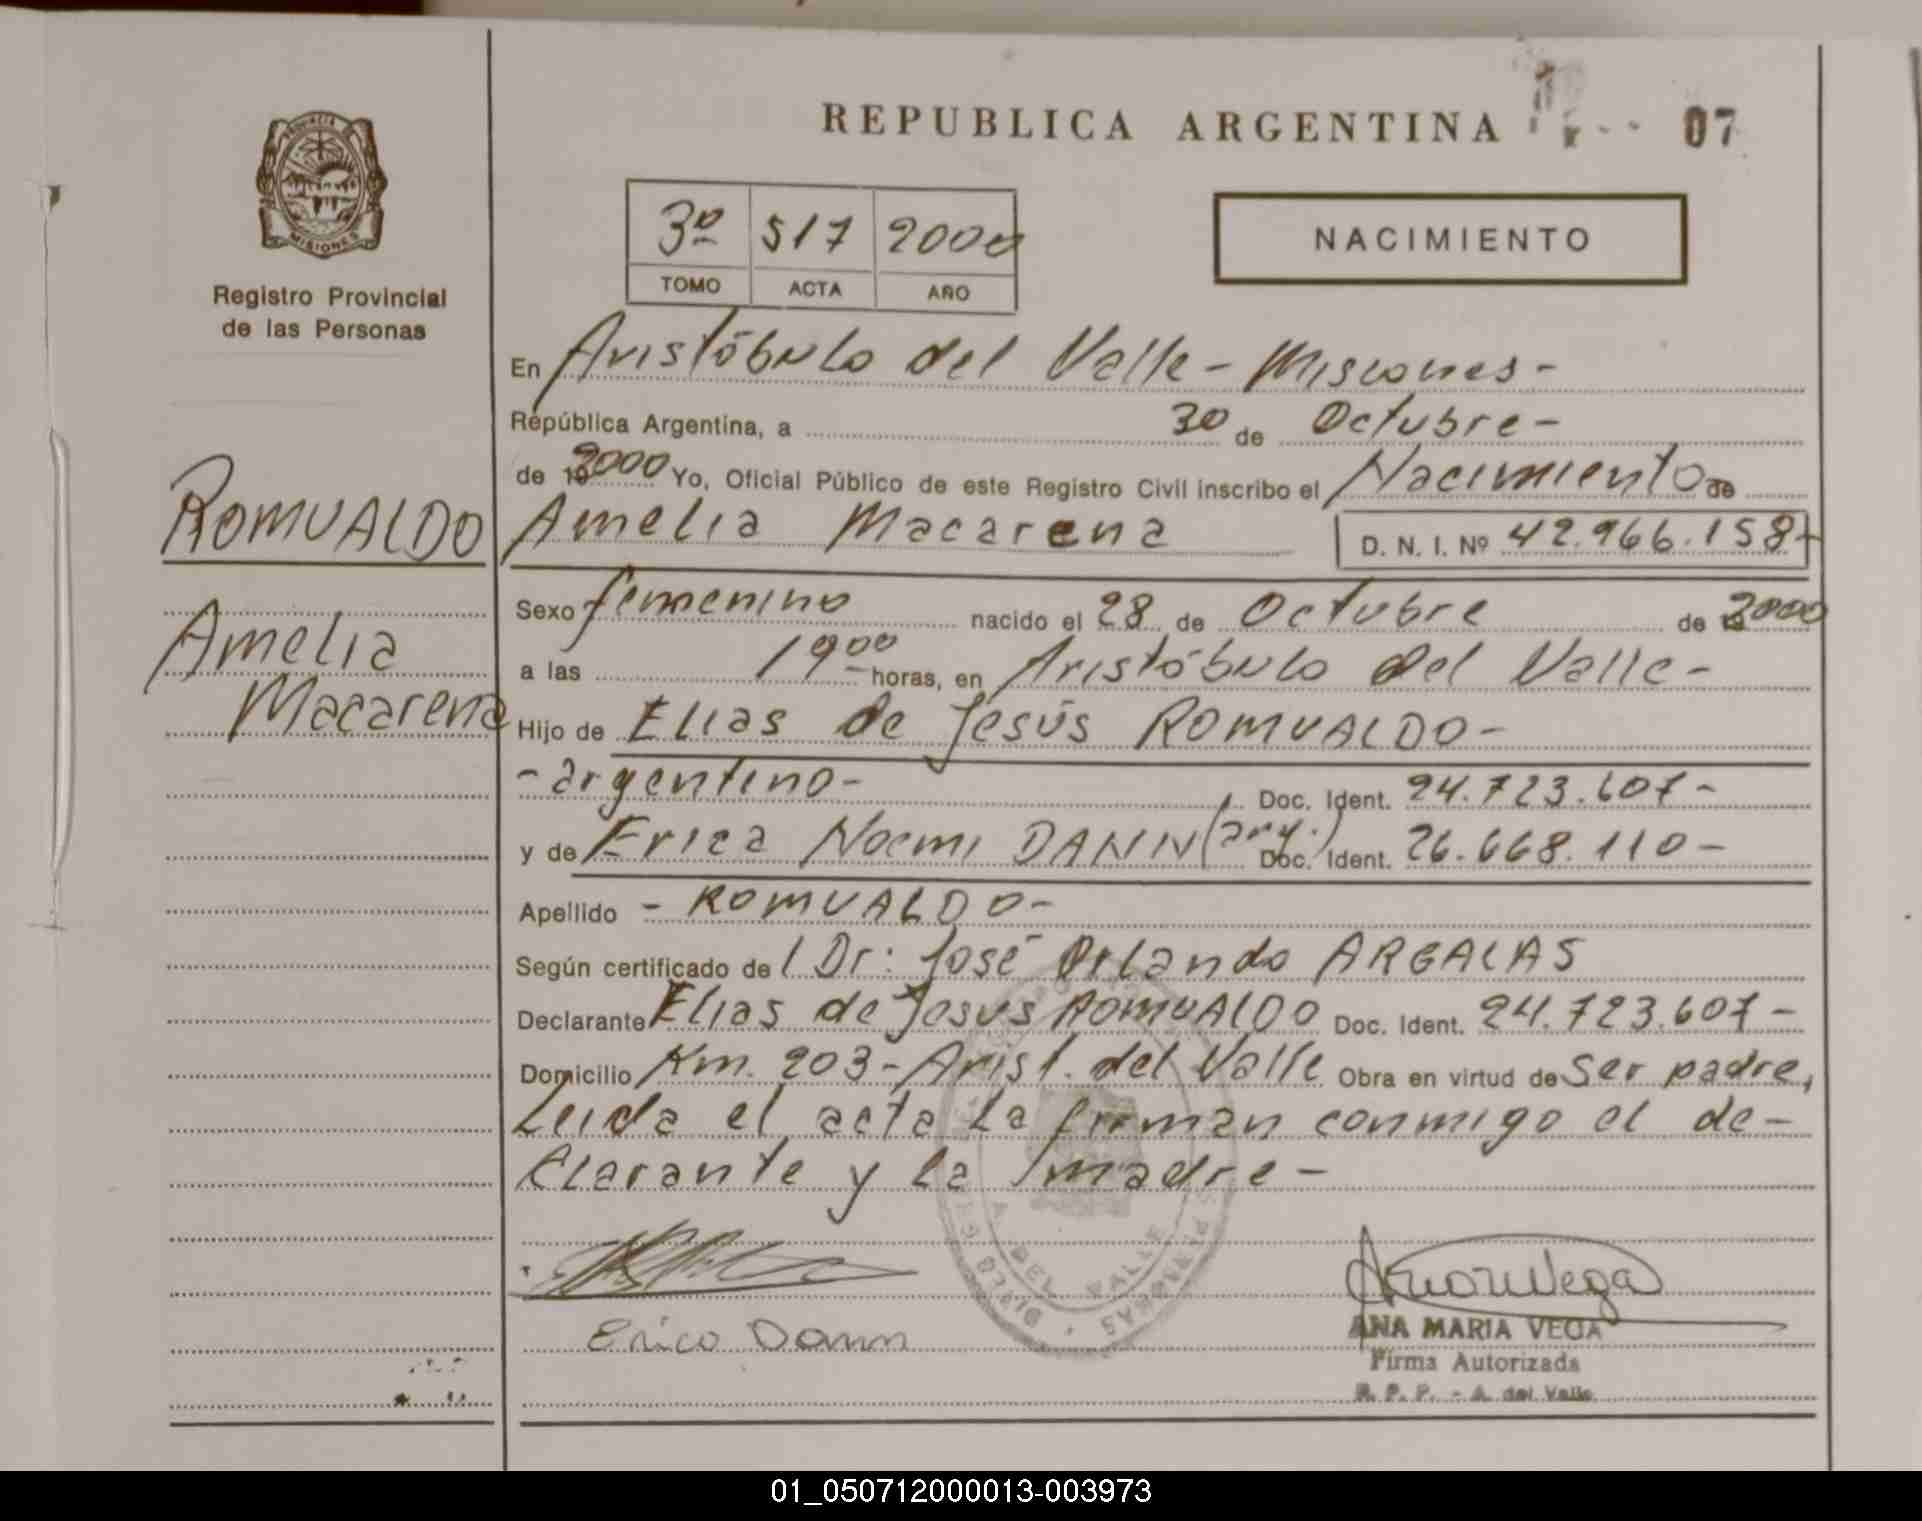 REPUBLICA ARGENTINA
07
PROVINCIA DE
MISIONES
Registro Provincial
de las Personas
3º 517 2000
TOMO ACTA AÑO
NACIMIENTO
En Aristóbulo del Valle - Misiones -
República Argentina, a 30 de Octubre -
de 2000 Yo, Oficial Público de este Registro Civil inscribo el Nacimiento de
ROMUALDO
Amelia Macarena
D. N. I. Nº 42.966.158-
Amelia
Macarena
Sexo femenino nacido el 28 de Octubre de 2000
a las 19 00 horas, en Aristóbulo del Valle -
Hijo de Elias de Jesús ROMUALDO -
- argentino - Doc. Ident. 24.723.607 -
y de Erica Noemi DANN (arg.) Doc. Ident. 26.668.110 -
Apellido - ROMUALDO -
Según certificado de l Dr: José Orlando ARGALAS
Declarante Elias de Jesus ROMUALDO Doc. Ident. 24.723.607 -
Domicilio Km. 203 - Arist. del Valle Obra en virtud de Ser padre,
Leida el acta La firman conmigo el de-
clarante y la madre -
Erica Dann
Ana M Vega
ANA MARIA VEGA
Firma Autorizada
R. P. P. - A. del Valle
A. DEL VALLE
01_050712000013-003973